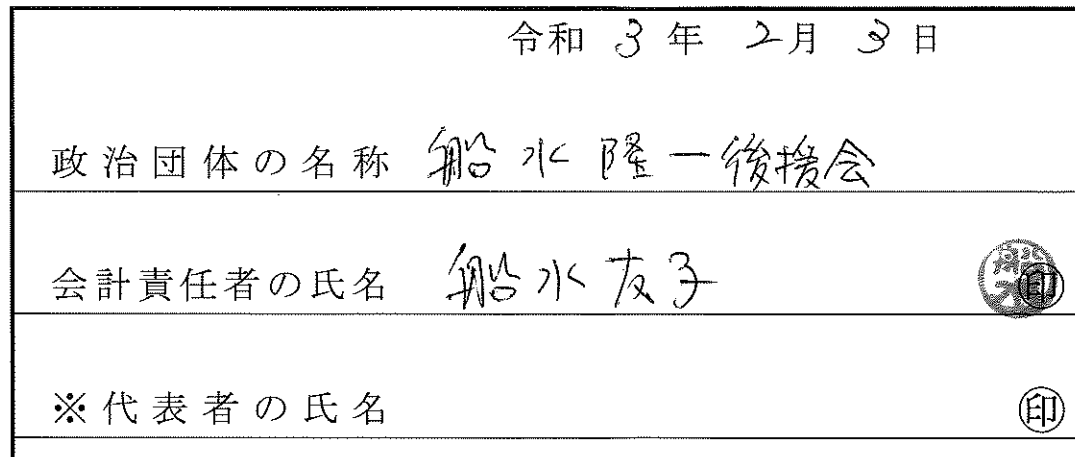 令和 3 年 2月 3 日
政治団体の名称 船水隆一後援会
会計責任者の氏名 船水友子 船水 印
※代表者の氏名 印